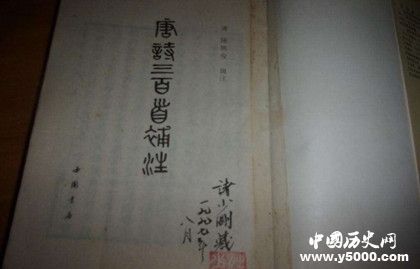 唐詩三百首補注
清 陳婉俊 補注
中國書店
藏
一九九七年
八月
中国历史网
www.y5000.com